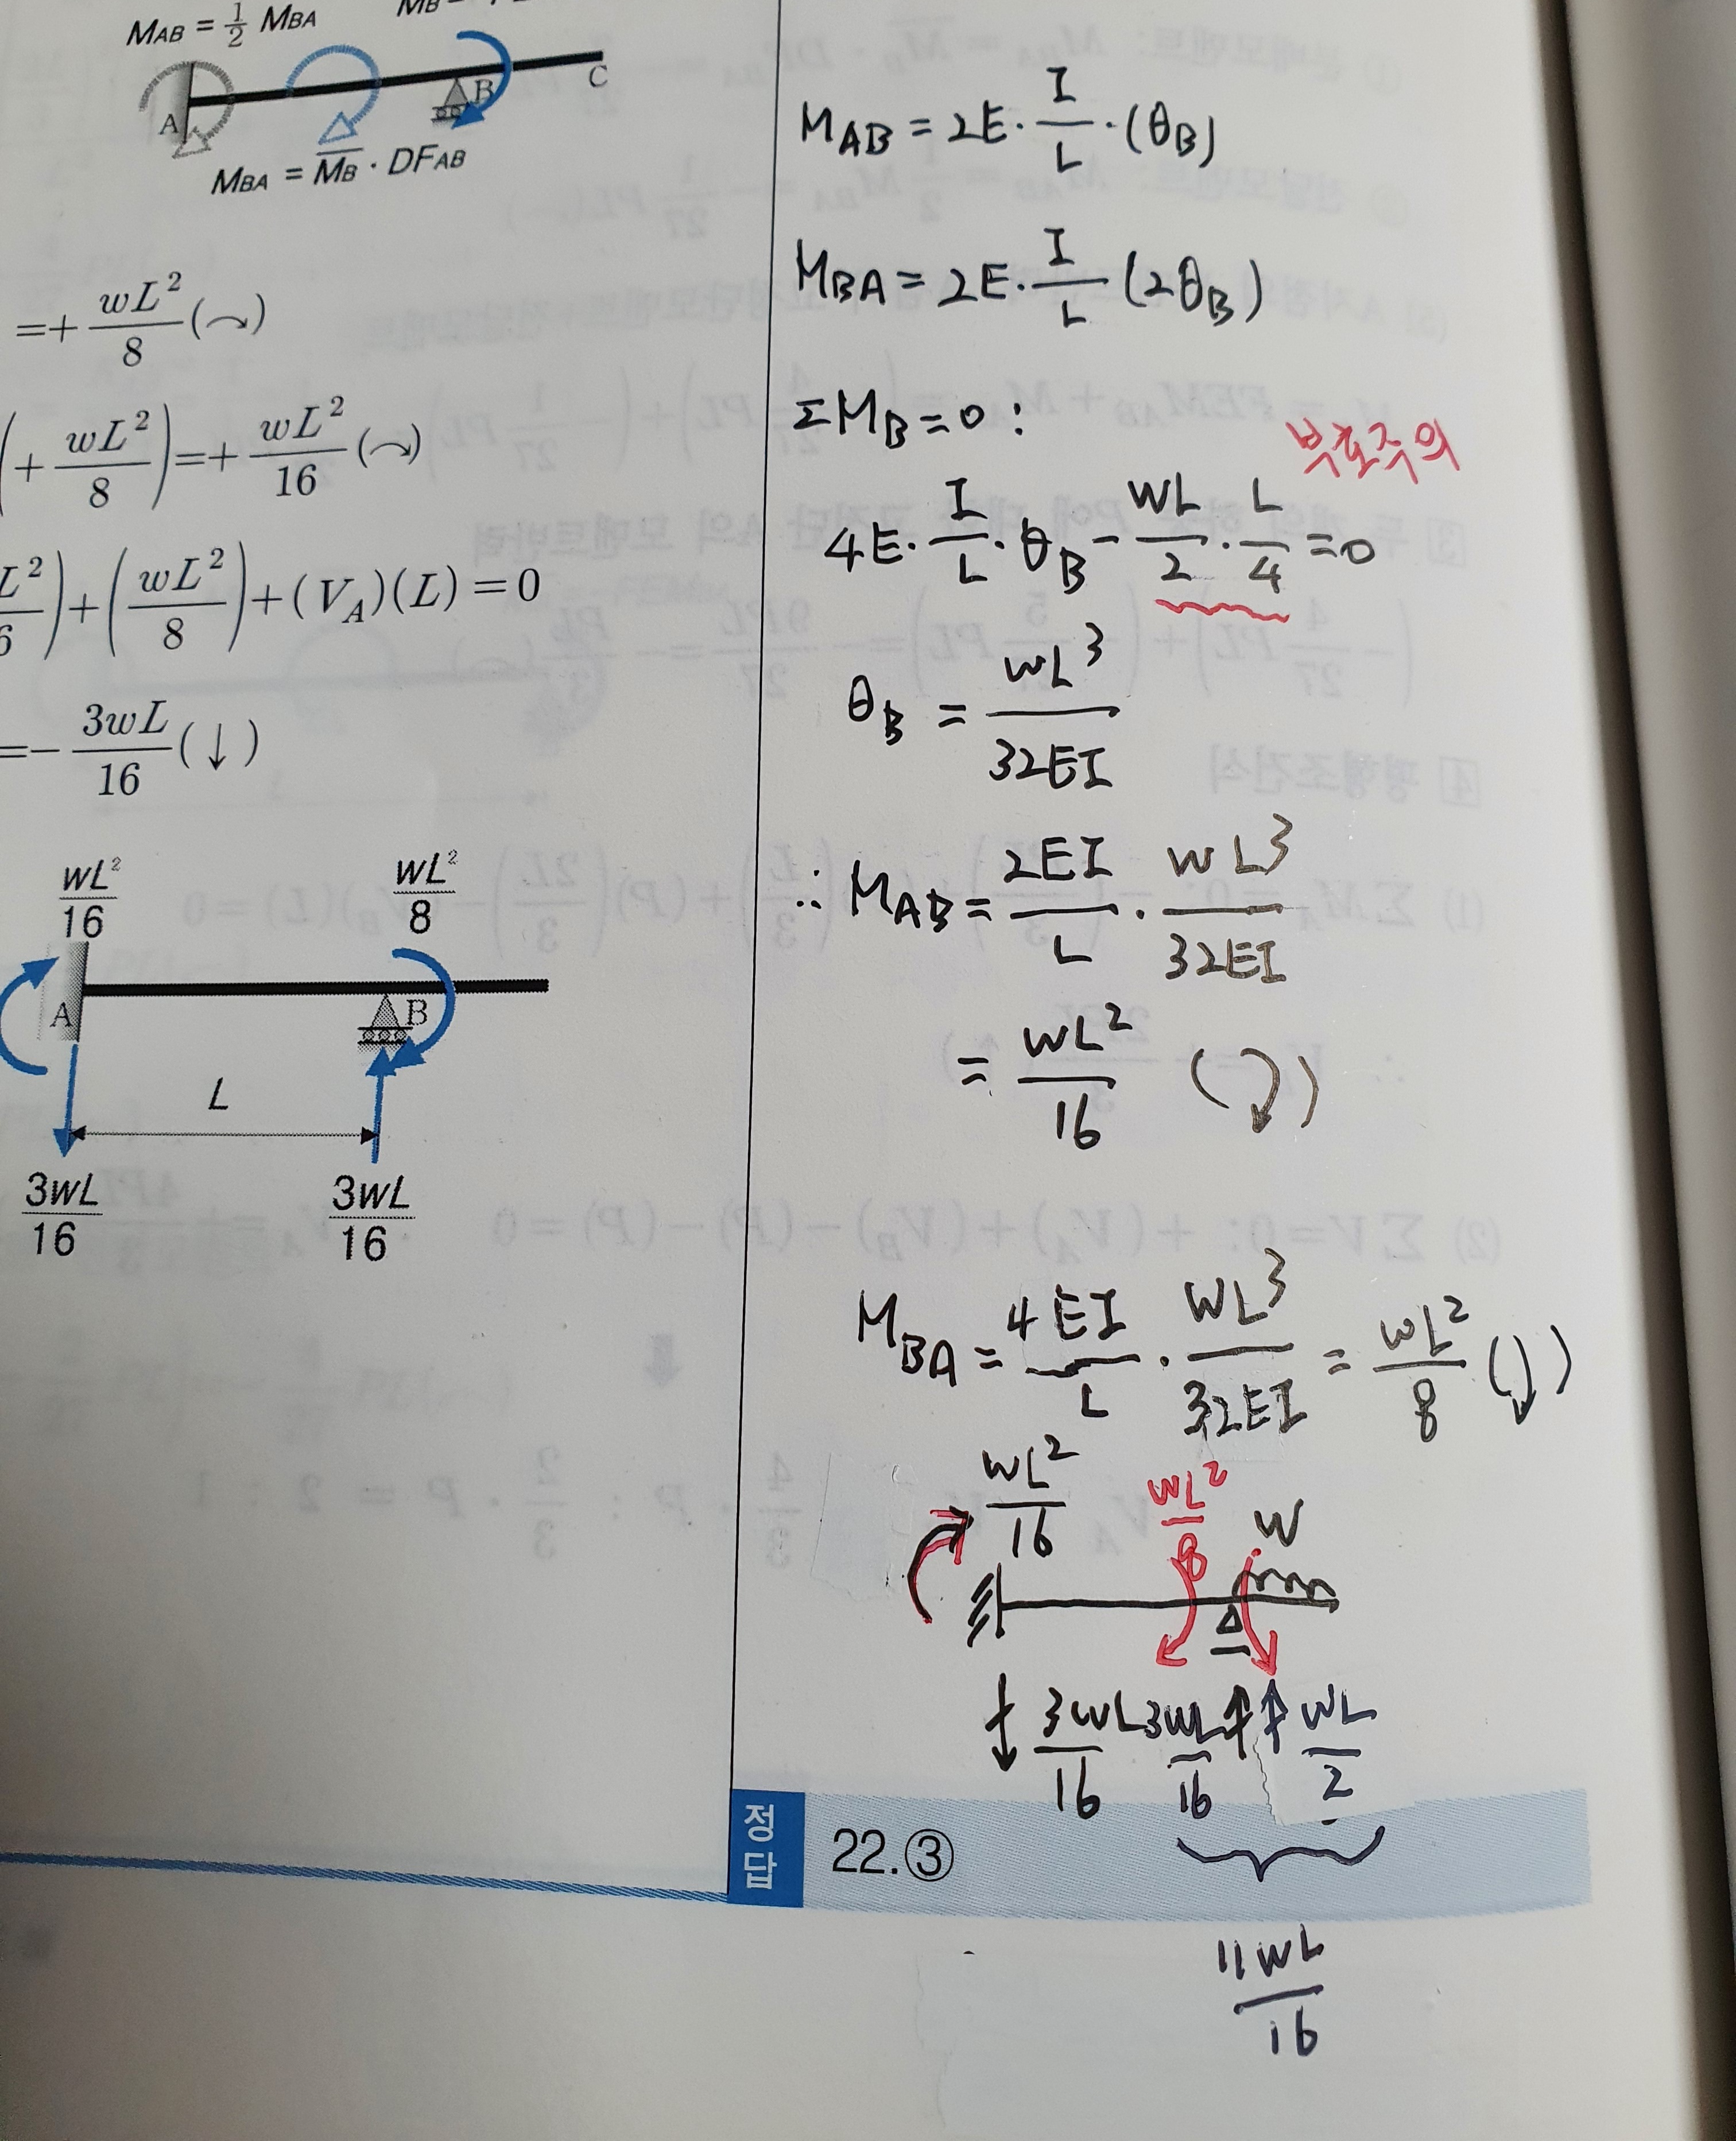 MAB = 1/2 MBA
A
B
C
MBA = M̅B · DFAB
=+ wL²/8 (⌒)
(+ wL²/8)=+ wL²/16 (⌒)
+(wL²/8)+(VA)(L)=0
=− 3wL/16 (↓)
wL²/16
wL²/8
A
B
L
3wL/16
3wL/16
MAB = 2E · I/L · (θB)
MBA = 2E · I/L (2θB)
ΣMB = 0 :
부호주의
4E · I/L · θB − WL/2 · L/4 = 0
θB = WL³/32EI
∴ MAB = 2EI/L · WL³/32EI
= WL²/16 (↷)
MBA = 4EI/L · WL³/32EI = WL²/8 (↷)
WL²/16
WL²/8
W
↓ 3WL/16 3WL/16 ↑ ↑ WL/2
정답
22.③
11WL/16